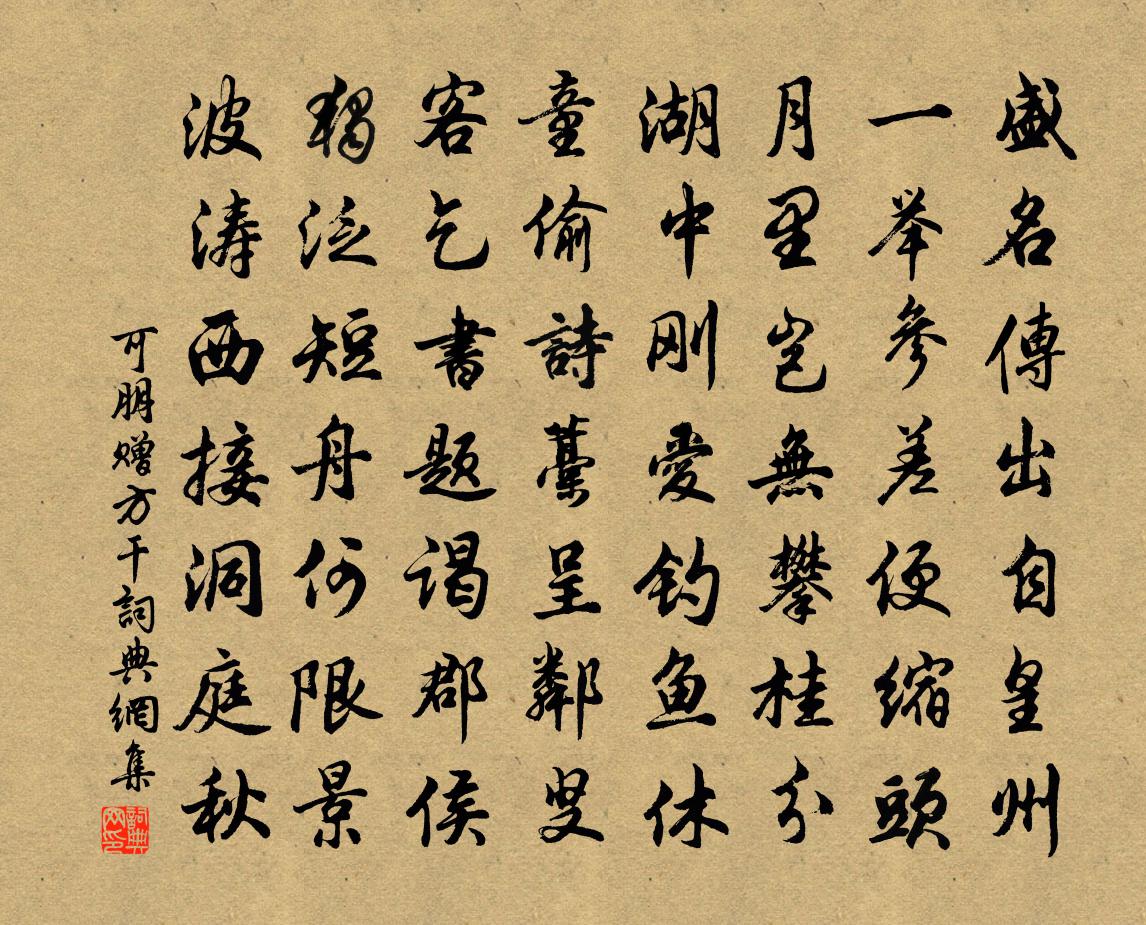 盛名傳出自皇州
一举參差便縮頭
月里岂無攀桂分
湖中刚愛釣魚休
童偷詩藁呈鄰叟
客乞書题谒郡侯
獨泛短舟何限景
波涛西接洞庭秋
可朋赠方干詞典網集
詞典网印